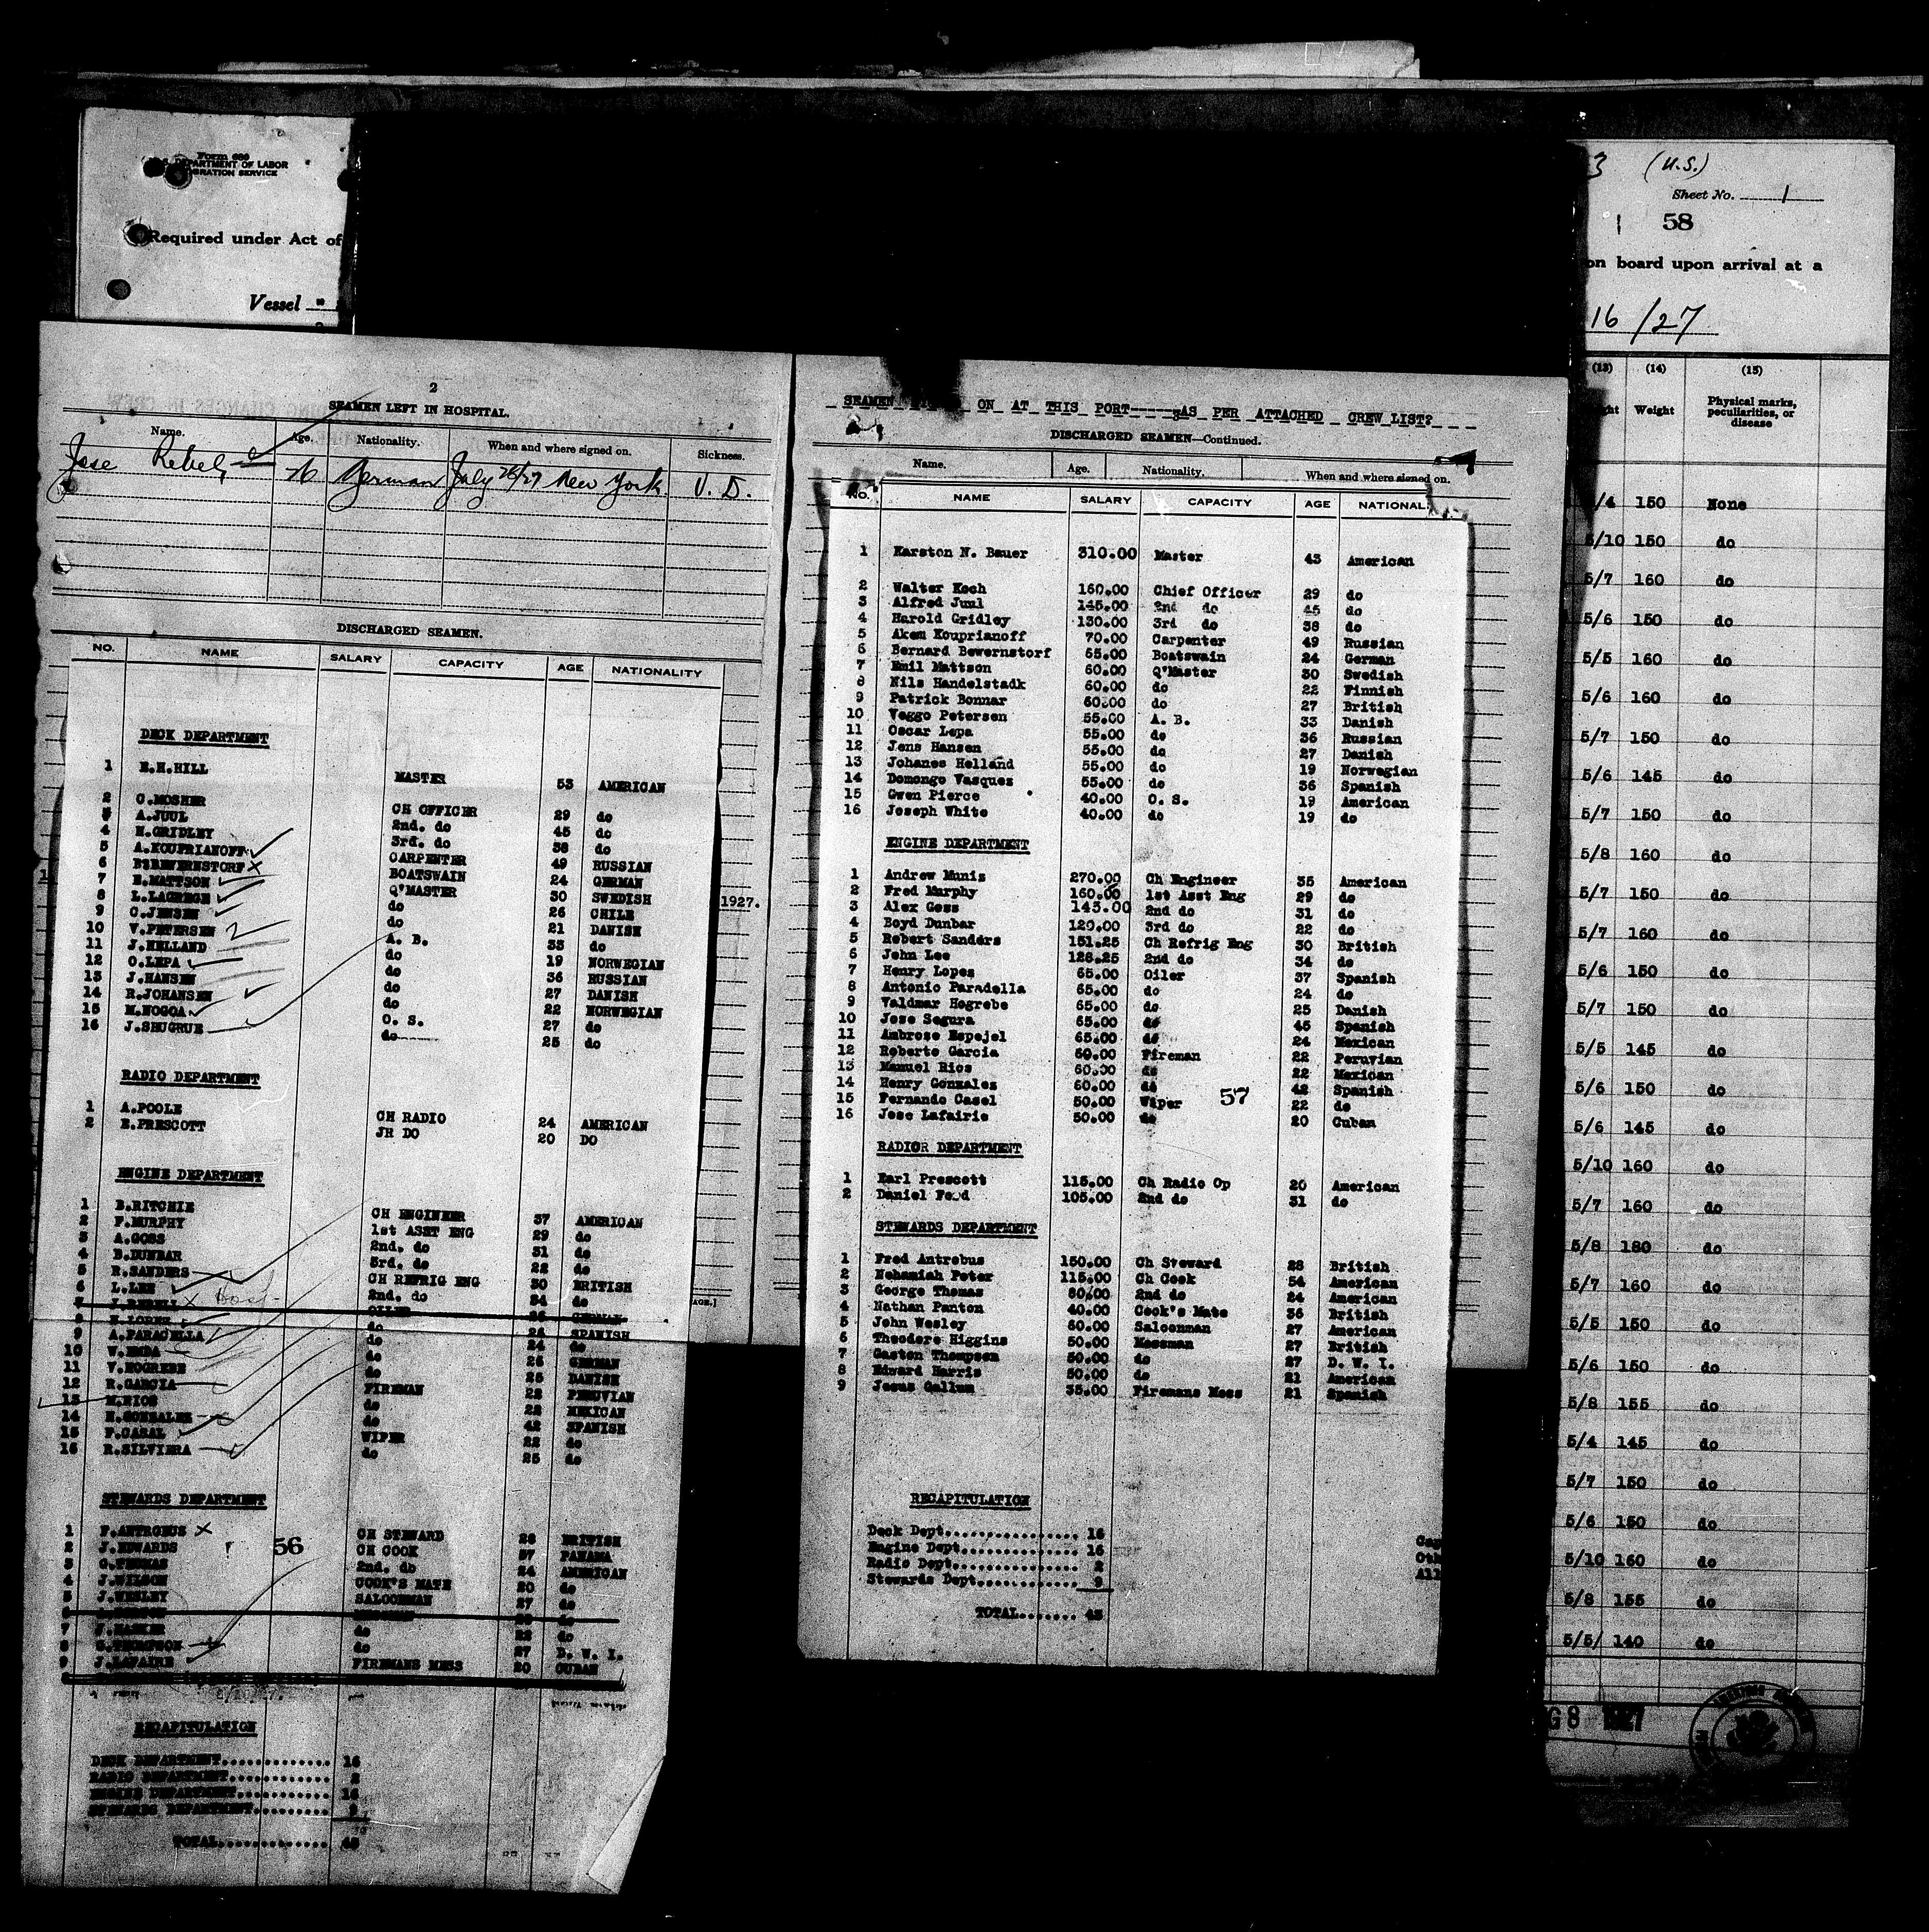 Form 689
DEPARTMENT OF LABOR
IMMIGRATION SERVICE
Required under Act of
Vessel
2
SEAMEN LEFT IN HOSPITAL.
Name. Age. Nationality. When and where signed on. Sickness.
Jose Rebels 26 German July 26/27 New York V. D.
DISCHARGED SEAMEN.
NO. NAME SALARY CAPACITY AGE NATIONALITY
DECK DEPARTMENT
1 E.H.HILL MASTER 53 AMERICAN
2 C.MOSHER CH OFFICER 29 do
3 A.JUUL 2nd. do 45 do
4 H.GRIDLEY 3rd. do 38 do
5 A.KOUPRIANOFF CARPENTER 49 RUSSIAN
6 B.BEWERNSTORF BOATSWAIN 24 GERMAN
7 E.MATTSON Q'MASTER 30 SWEDISH
8 do 26 CHILE
9 C.JENSEN do 21 DANISH
10 V.PETERSEN A. B. 33 do
11 J.HELLAND do 19 NORWEGIAN
12 O.LEPA do 36 RUSSIAN
13 J.HANSEN do 27 DANISH
14 R.JOHANSEN do 22 NORWEGIAN
15 M.NOGOA O. S. 27 do
16 J.SHUGRUE do 25 do
1927.
RADIO DEPARTMENT
1 A.POOLE CH RADIO 24 AMERICAN
2 E.PRESCOTT JR DO 20 DO
ENGINE DEPARTMENT
1 B.RITCHIE CH ENGINEER 37 AMERICAN
2 F.MURPHY 1st ASST ENG 29 do
3 A.GOSS 2nd. do 31 do
4 B.DUNBAR 3rd. do 22 do
5 R.SANDERS CH REFRIG ENG 30 BRITISH
6 L.LEE 2nd. do 34 do
7 J.REBELL OILER 26 GERMAN
8 H.LOPEZ do 26 SPANISH
9 A.PARADELLA do 24 do
10 do 26 GERMAN
11 V.HOGREBE do 25 DANISH
12 R.GARCIA FIREMAN 22 PERUVIAN
13 M.RIOS do 22 MEXICAN
14 H.GONZALES do 42 SPANISH
15 F.CASAL WIPER 22 do
16 R.SILVIERA do 25 do
STEWARDS DEPARTMENT
1 F.ANTROBUS CH STEWARD 28 BRITISH
2 J.EDWARDS 56 CH COOK 37 PANAMA
3 G.THOMAS 2nd. do 24 AMERICAN
4 J.WILSON COOK'S MATE 20 do
5 J.WESLEY SALOONMAN 27 do
6
7 do 22 do
8 G.THOMPSON do 27 D. W. I.
9 J.LAFAIRE FIREMANS MESS 20 CUBAN
RECAPITULATION
DECK DEPARTMENT............. 16
RADIO DEPARTMENT............ 2
ENGINE DEPARTMENT........... 16
STEWARDS DEPARTMENT......... 9
TOTAL............. 43
SEAMEN ON AT THIS PORT-----AS PER ATTACHED CREW LIST?
DISCHARGED SEAMEN—Continued.
Name. Age. Nationality. When and where signed on.
NO. NAME SALARY CAPACITY AGE NATIONAL
1 Karston N. Bauer 310.00 Master 43 American
2 Walter Koch 160.00 Chief Officer 29 do
3 Alfred Juul 145.00 2nd do 45 do
4 Harold Gridley 130.00 3rd do 38 do
5 Akem Kouprianoff 70.00 Carpenter 49 Russian
6 Bernard Bewernstorf 65.00 Boatswain 24 German
7 Emil Mattson 60.00 Q'Master 30 Swedish
8 Nils Handelstadk 60.00 do 22 Finnish
9 Patrick Bonnar 60.00 do 27 British
10 Veggo Petersen 55.00 A. B. 33 Danish
11 Oscar Lepa 55.00 do 36 Russian
12 Jens Hansen 55.00 do 27 Danish
13 Johanes Helland 55.00 do 19 Norwegian
14 Domongo Vasques 55.00 do 36 Spanish
15 Gwen Pierce 40.00 O. S. 19 American
16 Joseph White 40.00 do 19 do
ENGINE DEPARTMENT
1 Andrew Munis 270.00 Ch Engineer 35 American
2 Fred Murphy 160.00 1st Asst Eng 29 do
3 Alex Goss 143.00 2nd do 31 do
4 Boyd Dunbar 120.00 3rd do 22 do
5 Robert Sanders 151.25 Ch Refrig Eng 30 British
6 John Lee 126.25 2nd do 34 do
7 Henry Lopes 65.00 Oiler 37 Spanish
8 Antonio Paradella 65.00 do 24 do
9 Valdmar Hogrebe 65.00 do 25 Danish
10 Jose Segura 65.00 do 45 Spanish
11 Ambrose Espejel 65.00 do 24 Mexican
12 Roberto Garcia 60.00 Fireman 22 Peruvian
13 Manuel Rios 60.00 do 22 Mexican
14 Henry Gonzales 60.00 do 42 Spanish
15 Fernando Casel 50.00 Wiper 57 22 do
16 Jose Lafairie 50.00 do 20 Cuban
RADIOR DEPARTMENT
1 Earl Prescott 115.00 Ch Radio Op 20 American
2 Daniel Food 105.00 2nd do 31 do
STEWARDS DEPARTMENT
1 Fred Antrobus 150.00 Ch Steward 28 British
2 Nehamiah Peter 115.00 Ch Cook 54 American
3 George Thomas 80.00 2nd do 24 American
4 Nathan Panton 40.00 Cook's Mate 36 British
5 John Wesley 60.00 Saloonman 27 American
6 Theodore Higgins 50.00 Messman 27 British
7 Gaston Thompson 50.00 do 27 D. W. I.
8 Edward Harris 50.00 do 21 American
9 Jesus Gallum 35.00 Firemans Mess 21 Spanish
RECAPITULATION
Deck Dept................. 16
Engine Dept............... 16
Radio Dept................ 2
Stewards Dept............. 9
TOTAL........ 43
3 (U.S.)
Sheet No. 1
58
on board upon arrival at a
16/27
(13) (14) (15)
ght Weight Physical marks, peculiarities, or disease
5/4 150 None
5/10 150 do
5/7 160 do
5/6 150 do
5/5 160 do
5/6 160 do
5/7 150 do
5/6 145 do
5/7 150 do
5/8 160 do
5/7 150 do
5/7 160 do
5/6 150 do
5/7 150 do
5/5 145 do
5/6 150 do
5/6 145 do
5/10 160 do
5/7 160 do
5/8 180 do
5/7 160 do
5/5 150 do
5/6 150 do
5/8 155 do
5/4 145 do
5/7 150 do
5/6 150 do
5/10 160 do
5/8 155 do
5/5/ 140 do
G 8 1927